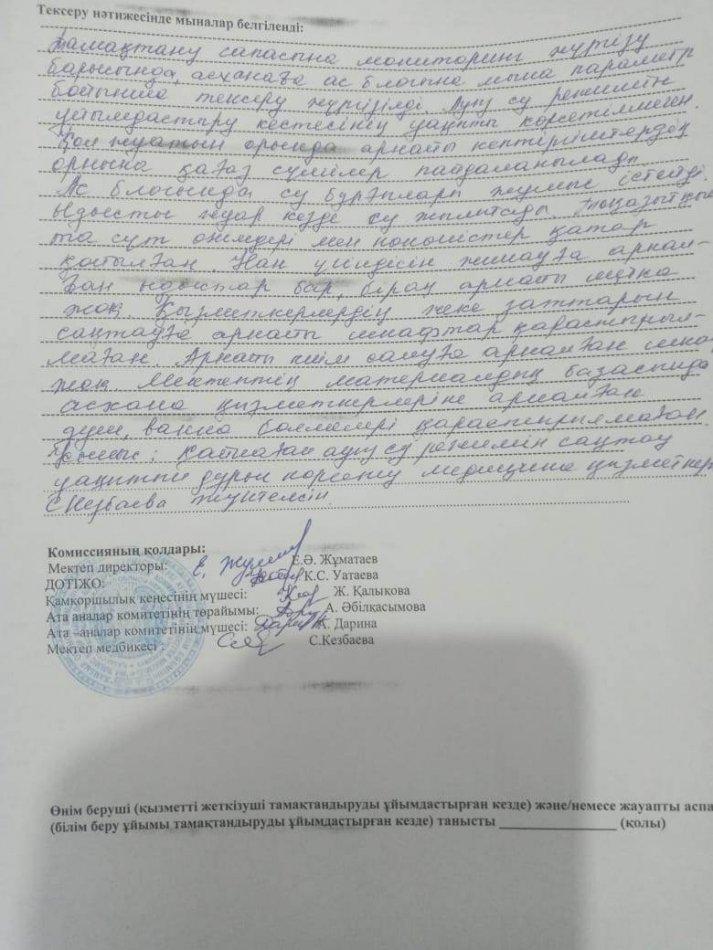 Тексеру нәтижесінде мыналар белгіленді:
Тамақтану сапасына мониторинг жүргізу
барысында, асханаға ас блогына мына параметр
бойынша тексеру жүргізілді. Ауыз су режимін
ұйымдастыру кестесінің уақыты көрсетілмеген.
Қол жуатын орында арнайы кептіргіштердің
орнына қағаз сүлгілер пайдаланылады.
Ас блогында су бұрғылары жұмыс істейді.
Ыдысты жуар кезде су жылытсады.
та сүт өнімдері мен көкөністер қатар
қойылған. Нан үгіндесін жинауға арнал-
ған ыдыстар бар, бірақ арнайы щетка
жоқ. Қызметкерлердің жеке заттарын
сақтауға арнайы шкафтар қарастырыл-
маған. Арнайы киім салуға арналған шка
жоқ Мектептің материалдық базасында
асхана қызметкерлеріне арналған
душ, ванна бөлмелері қарастырылмаған.
Ұсыныс: Қайнаған ауыз су режимін сақтау
уақытын дұрыс көрсетку медицина қызметкер
С Кезбаева жүктелсін.
Комиссияның қолдары:
Мектеп директоры: Е.Ә. Жұматаев
ДОТІЖО: К.С. Уатаева
Қамқоршылық кеңесінің мүшесі: Ж. Қалыкова
Ата аналар комитетінің төрайымы: А. Әбілқасымова
Ата –аналар комитетінің мүшесі: Дарина
Мектеп медбикесі : С.Кезбаева
Өнім беруші (қызметті жеткізуші тамақтандыруды ұйымдастырған кезде) және/немесе жауапты аспа
(білім беру ұйымы тамақтандыруды ұйымдастырған кезде) танысты ________________ (қолы)